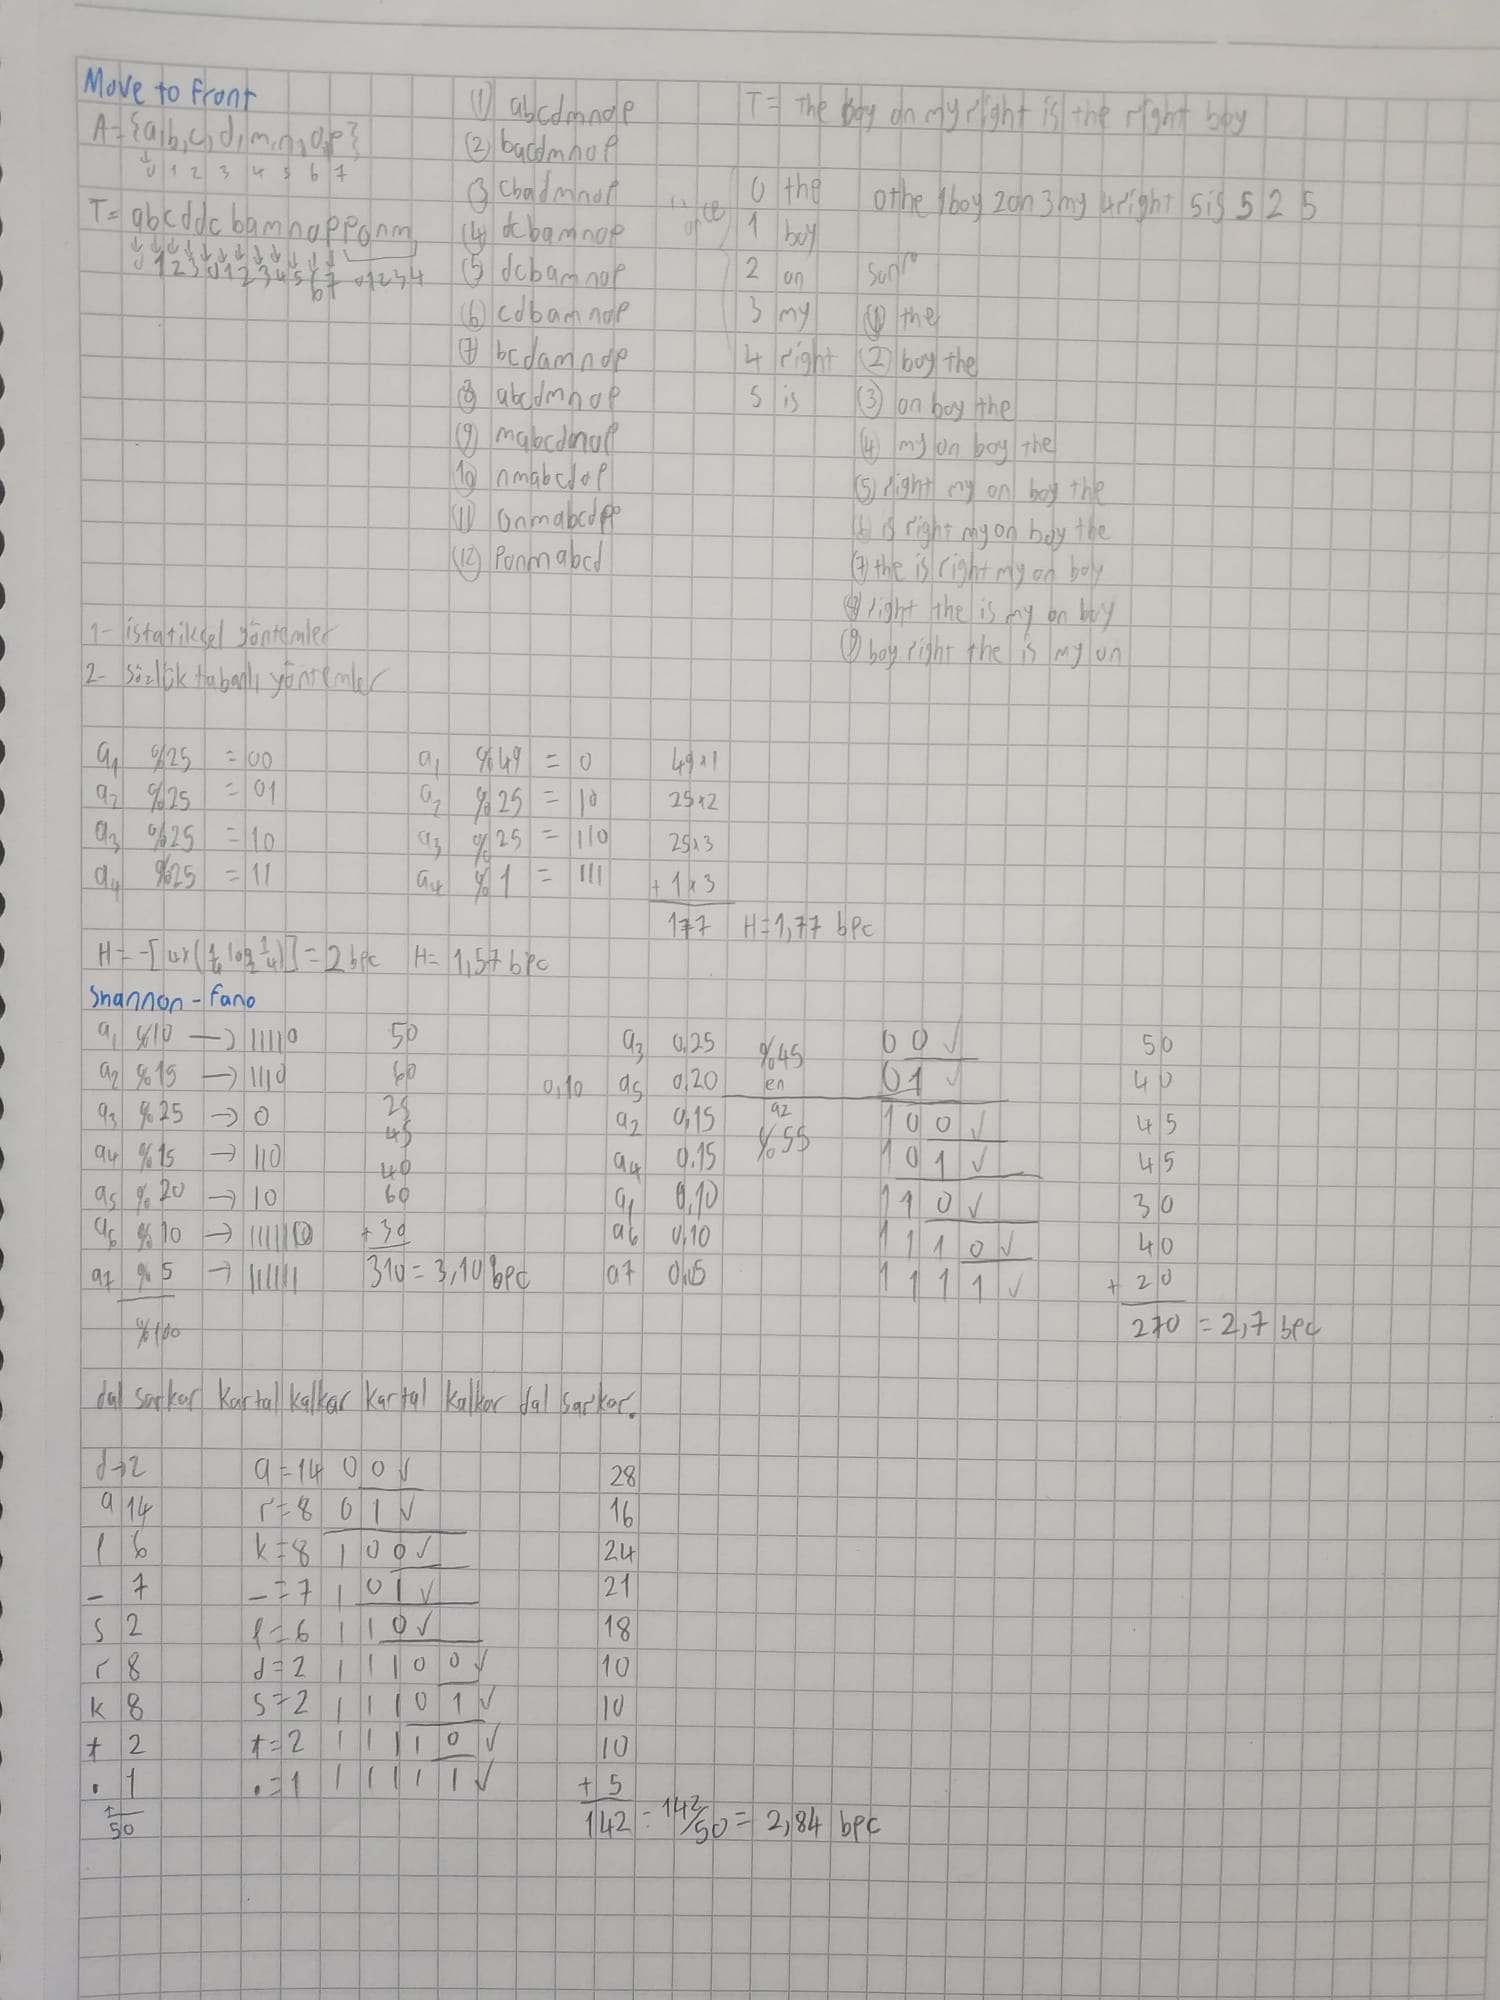 Move to Front
A={a,b,c,d,m,n,o,p}
0 1 2 3 4 5 6 7
T= abcddcbamnopponm
0 1 2 3 0 1 2 3 4 5 6 7 0 1 2 3 4
(1) abcdmnop
(2) bacdmnop
(3) cbadmnop
(4) dcbamnop
(5) dcbamnop
(6) cdbamnop
(7) bcdamnop
(8) abcdmnop
(9) mabcdnop
10 nmabcdop
(11) onmabcdp
(12) Ponmabcd
T= the boy on my right is the right boy
önce
0 the
1 boy
2 on
3 my
4 right
5 is
0the 1boy 2on 3my 4right 5is 5 2 5
sonra
(1) the
(2) boy the
(3) on boy the
(4) my on boy the
(5) right my on boy the
(6) is right my on boy the
(7) the is right my on boy
(8) right the is my on boy
(9) boy right the is my on
1- istatiksel yöntemler
2- Sözlük tabanlı yöntemler
a1 %25 = 00
a2 %25 = 01
a3 %25 = 10
a4 %25 = 11
H = -[4x(1/4 log2 1/4)] = 2 bpc
a1 %49 = 0 49x1
a2 %25 = 10 25x2
a3 %25 = 110 25x3
a4 %1 = 111 + 1x3
177 H=1,77 bpc
H= 1,57 bpc
Shannon-Fano
a1 %10 → 11110 50
a2 %15 → 1110 60
a3 %25 → 0 25
a4 %15 → 110 45
a5 %20 → 10 40
a6 %10 → 111110 60
a7 %5 → 111111 +30
%100
310 = 3,10 bpc
a3 0,25 %45 00 ✓ 50
0,10 a5 0,20 en 01 ✓ 40
a2 0,15 az 100 ✓ 45
a4 0,15 %55 101 ✓ 45
a1 0,10 110 ✓ 30
a6 0,10 1110 ✓ 40
a7 0,05 1111 ✓ + 20
270 = 2,7 bpc
dal sarkar kartal kalkar kartal kalkar dal sarkar.
d→2 a=14 00 ✓ 28
a 14 r=8 01 ✓ 16
l 6 k=8 100 ✓ 24
_ 7 _=7 101 ✓ 21
s 2 l=6 110 ✓ 18
r 8 d=2 11100 ✓ 10
k 8 s=2 11101 ✓ 10
t 2 t=2 11110 ✓ 10
. 1 .=1 11111 ✓ + 5
+ 50
142 = 142/50 = 2,84 bpc